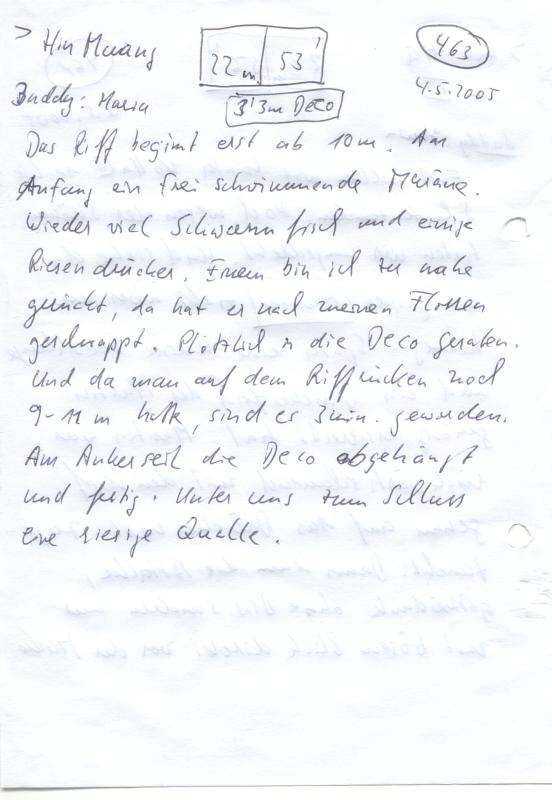 > Hin Muang
22 m 53'
463
4.5.2005
Buddy: Maria
3' 3m Deco
Das Riff beginnt erst ab 10m. Am
Anfang ein frei schwimmende Muräne.
Wieder viel Schwarmfisch und einige
Riesendrücker. Einem bin ich zu nahe
gerückt, da hat er nach meinen Flossen
geschnappt. Plötzlich in die Deco geraten.
Und da man auf dem Riffrücken noch
9-11m hatte, sind es 3min. geworden.
Am Ankerseil die Deco abgehängt
und fertig. Unter uns zum Schluss
eine riesige Qualle.